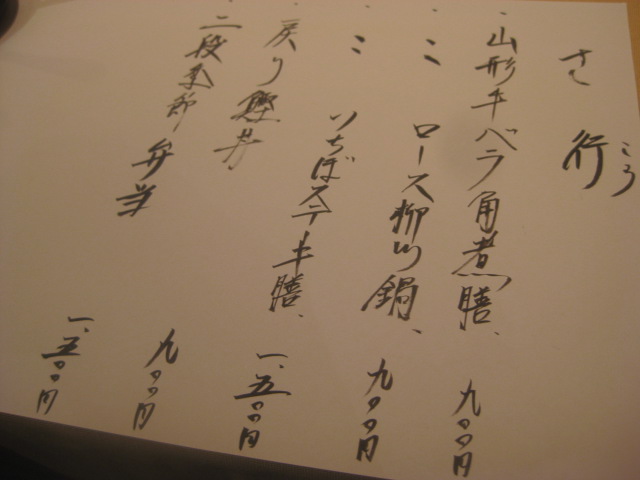 さ 行
ころ
・山形牛バラ角煮膳、 九〇〇円
・〃 ロース柳川鍋、 九〇〇円
・〃 いちぼステーキ膳、 一、五〇〇円
・戻り鰹丼 九〇〇円
・二段季節弁当 一、五〇〇円